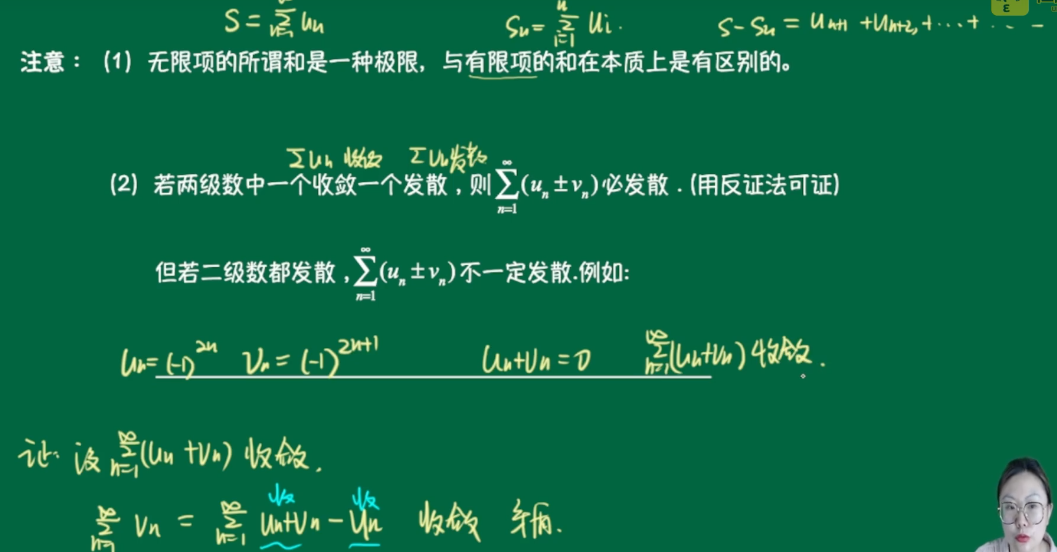 S = ∑_{n=1} u_n  S_n = ∑_{i=1}^{n} u_i .  S - S_n = u_{n+1} + u_{n+2} + ⋯ +
注意：（1）无限项的所谓和是一种极限，与有限项的和在本质上是有区别的。
∑u_n 收敛  ∑v_n 发散
（2）若两级数中一个收敛一个发散，则∑_{n=1}^{∞}(u_n ± v_n)必发散．(用反证法可证)
但若二级数都发散，∑_{n=1}^{∞}(u_n ± v_n)不一定发散.例如:
u_n = (-1)^{2n}  v_n = (-1)^{2n+1}  u_n + v_n = 0  ∑_{n=1}^{∞}(u_n + v_n) 收敛 .
证: 设 ∑_{n=1}^{∞}(u_n + v_n) 收敛 .
收 收
∑_{n=1}^{∞} v_n = ∑_{n=1}^{∞} u_n + v_n - u_n 收敛 矛盾.